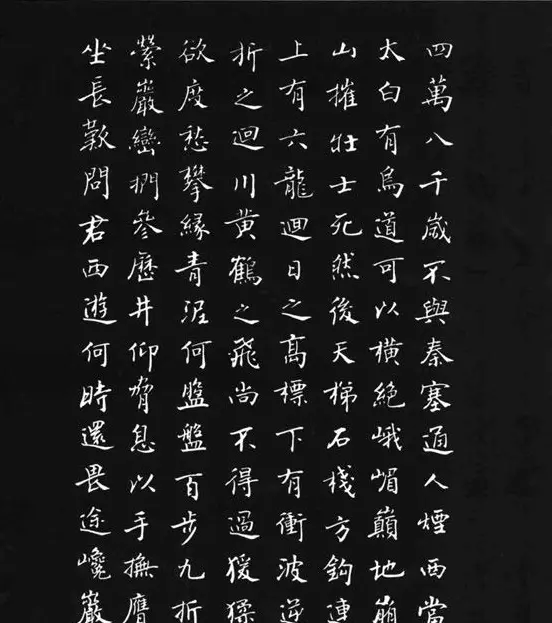 四萬八千歲不與秦塞通人煙西當
太白有鳥道可以橫絕峨嵋巔地崩
山摧壯士死然後天梯石棧方鉤連
上有六龍迴日之高標下有衝波逆
折之迴川黃鶴之飛尚不得過猨猱
欲度愁攀緣青泥何盤盤百步九折
縈巖巒捫參歷井仰脅息以手撫膺
坐長歎問君西遊何時還畏途巉巖